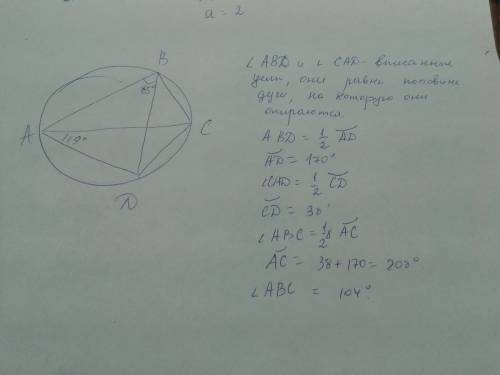 a = 2
B
85°
A
19°
C
D
∠ ABD и ∠ CAD - вписанные
углы, они равны половине
дуги, на которую они
опираются.
ABD = 1/2 AD
AD = 170°
∠CAD = 1/2 CD
CD = 38°
∠ ABC = 1/2 AC
AC = 38 + 170 = 208°
∠ ABC = 104°.